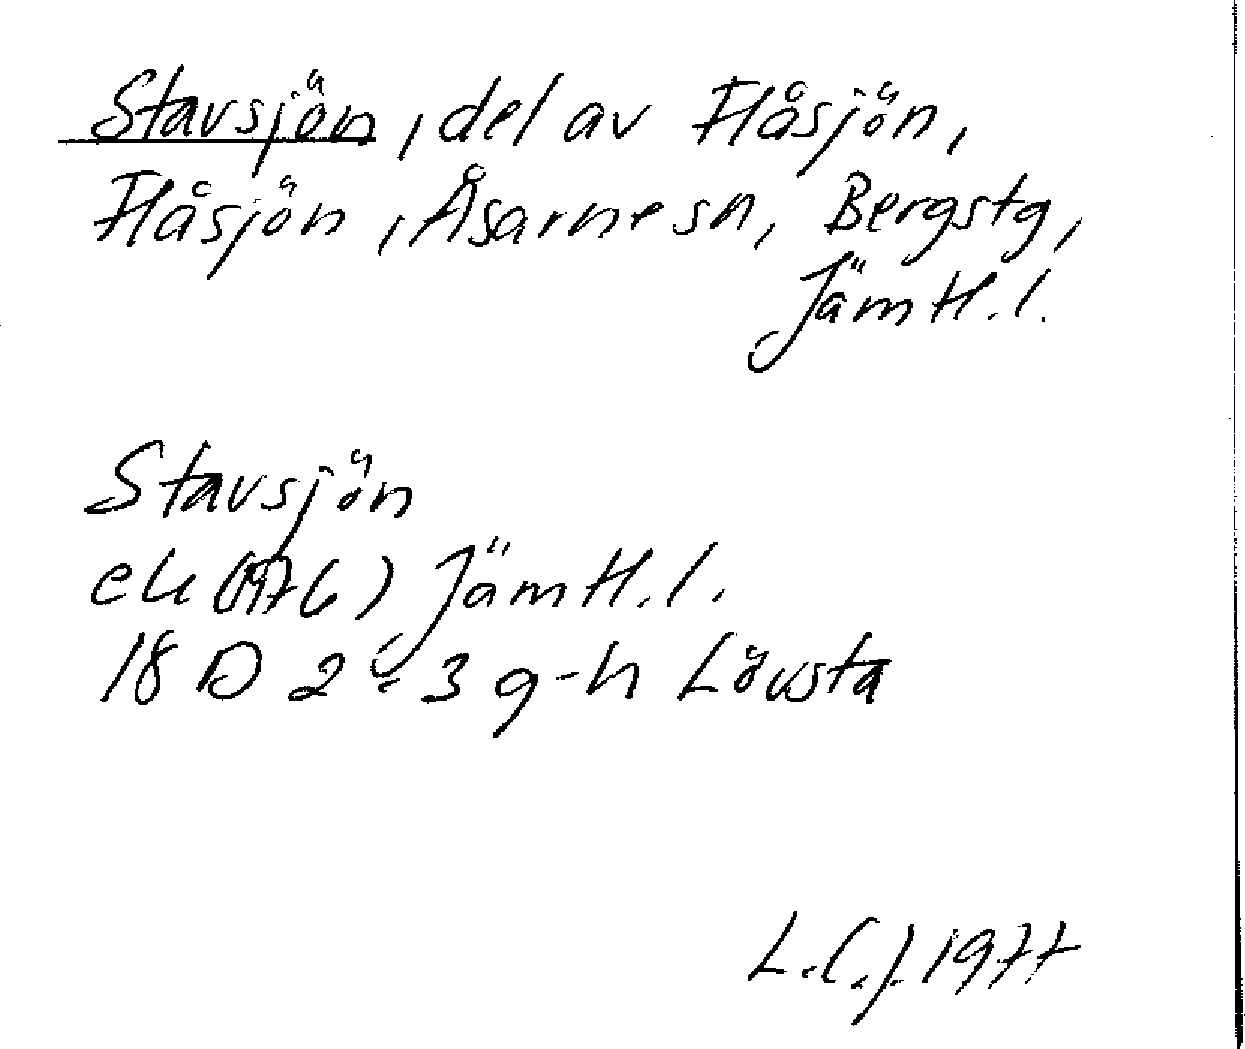 Stavsjön, del av Flåsjön,
Flåsjön, Åsarnesn, Bergstg,
Jämtl.l.
Stavsjön
ek (1976) Jämtl.l.
18 D 2-3 g-h Lövsta
L.C.J. 1977